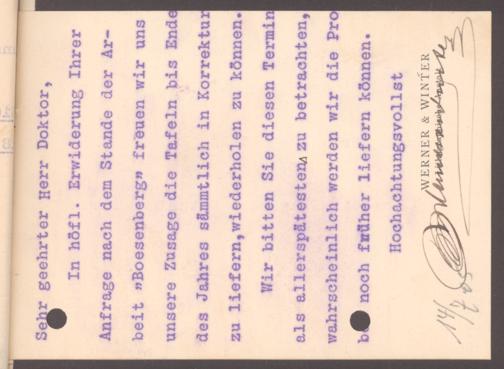 Sehr geehrter Herr Doktor,
In höfl. Erwiderung Ihrer
Anfrage nach dem Stande der Ar-
beit "Boesenberg" freuen wir uns
unsere Zusage die Tafeln bis Ende
des Jahres sämmtlich in Korrektur
zu liefern, wiederholen zu können.
Wir bitten Sie diesen Termin
als allerspätesten, zu betrachten,
wahrscheinlich werden wir die Pro
be noch früher liefern können.
Hochachtungsvollst
WERNER & WINTER
14/7 05